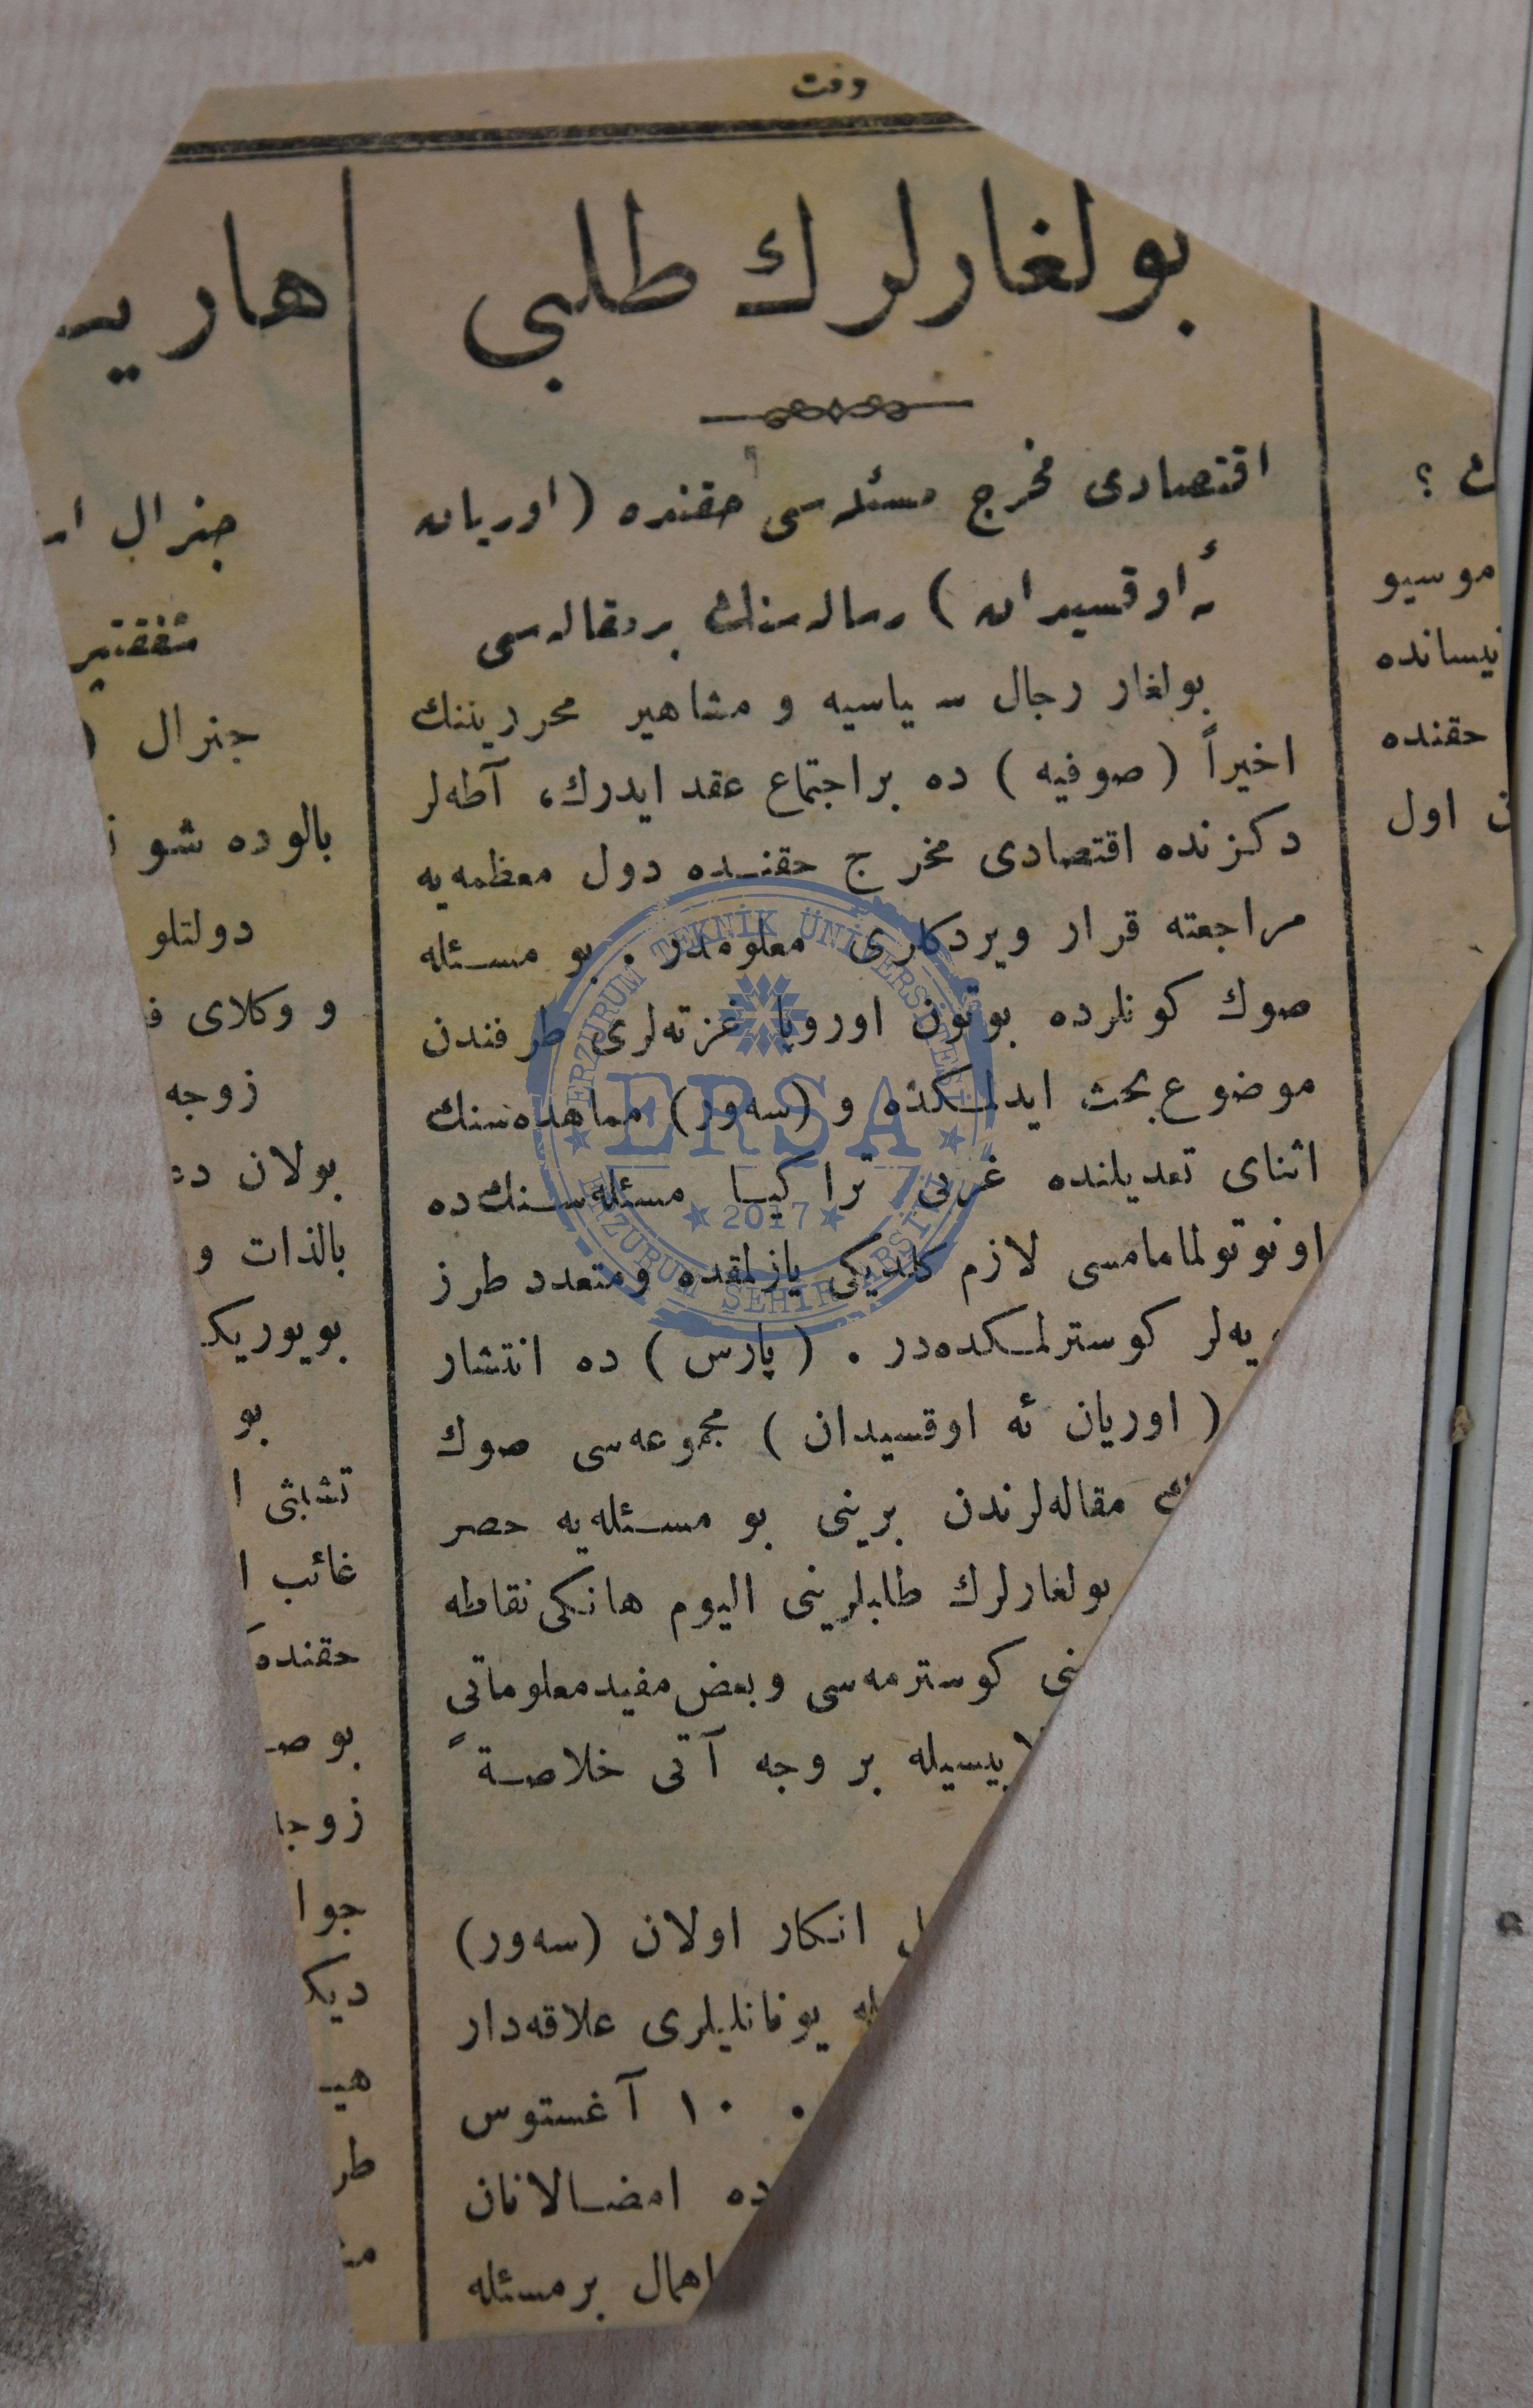 وقت
بولغارلرك طلبی
اقتصادی مخرج مسئله سی حقنده (اوریان
ئه اوقسیدان) رساله سنك بر مقاله سی
بولغار رجال سیاسیه و مشاهیر محررینك
اخیراً (صوفیه) ده بر اجتماع عقد ایدرك، آطه‌لر
دكزنده اقتصادی مخرج حقنده دول معظمه‌یه
مراجعته قرار ویردكلری معلومدر . بو مسئله
صوك كونلرده بوتون اوروپا غزته‌لری طرفندن
موضوع بحث ایدلمكده و (سه‌ور) معاهده‌سنك
اثنای تعدیلنده غربی تراكیا مسئله‌سنك‌ده
اونوتولمامسی لازم كلدیكی یازلمقده و متعدد طرز
یه‌لر كوسترلمكده‌در . (پارس) ده انتشار
(اوریان ئه اوقسیدان) مجموعه‌سی صوك
مقاله‌لرندن برینی بو مسئله‌یه حصر
بولغارلرك طلبلرینی الیوم هانكی نقاطه
نی كوسترمه‌سی و بعض مفید معلوماتی
بیسیله بر وجه آتی خلاصةً
ل انكار اولان (سه‌ور)
له یونانلیلری علاقه‌دار
. ۱۰ آغستوس
ده امضالانان
اهمال بر مسئله
هاری
جنرال
جنرال (
بالوده شو
دولتلو
و وكلای
زوجه
بولان
بالذات و
بو
تشبثی ا
غائب ا
حقنده
بو
جوا
طر
؟
موسیو
نیسانده
حقنده
ن اول
ERZURUM TEKNİK ÜNİVERSİTESİ
ERSA
★ 2017 ★
ERZURUM ŞEHİR ARŞİVİ